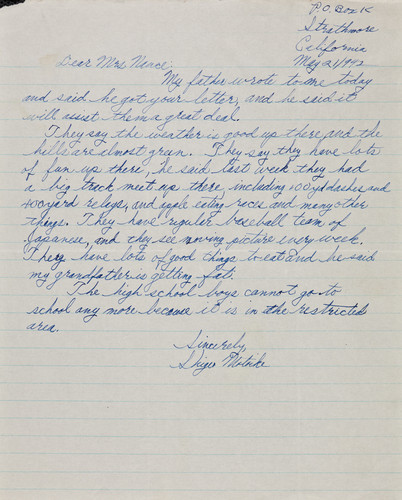 P.O. Box K
Strathmore
California
May 21, 1942
Dear Mrs. Nance:
My father wrote to me today
and said he got your letter, and he said it
will assist them a great deal.
They say the weather is good up there, and the
hills are almost green. They say they have lots
of fun up there, he said last week they had
a big track meet up there, including 100 yd dashes and
400 yard relays, and apple eating races and many other
things. They have regular baseball team of
Japanese, and they see moving picture every week.
They have lots of good things to eat and he said
my grandfather is getting fat.
The high school boys cannot go to
school any more because it is in the restricted
area.
Sincerely,